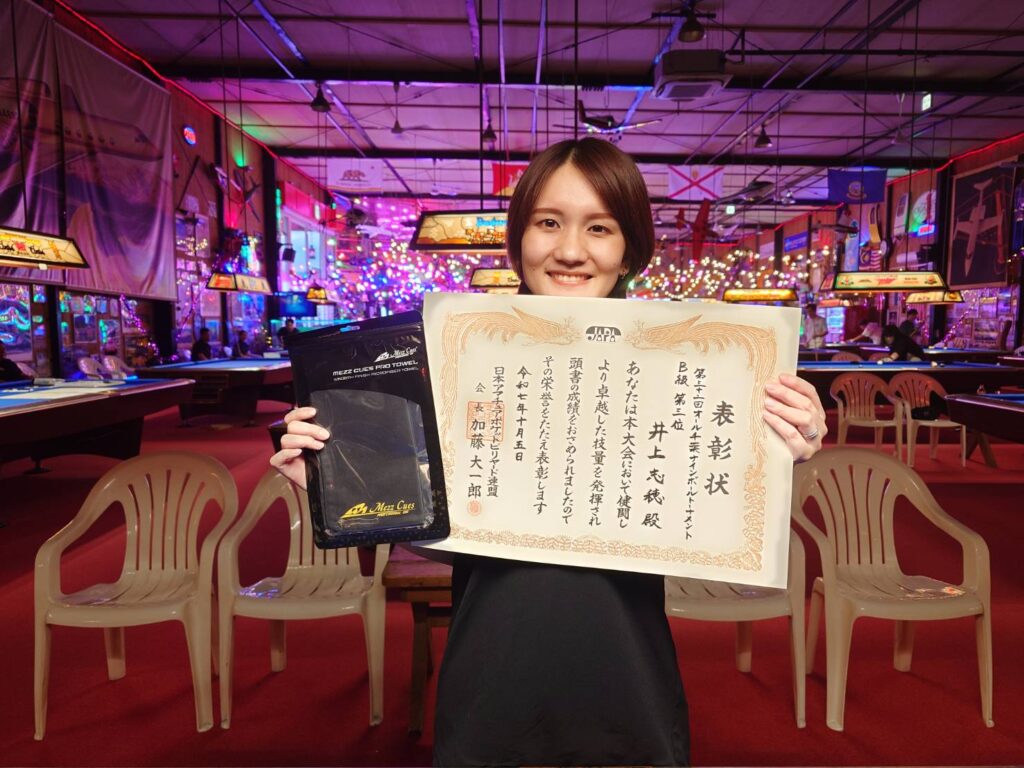 JAPA
表彰状
オール千葉ナインボールトーナメント
B級 第三位
井上志穂 殿
あなたは本大会において健闘し
より卓越した技量を発揮され
頭書の成績をおさめられましたので
その栄誉をたたえ表彰します
令和七年十月五日
日本アマチュアポケットビリヤード連盟
会長 加藤大一郎
Mezz Cues
MEZZ CUES PRO TOWEL
SMOOTH FINISH MICROFIBER TOWEL
Mezz Cues